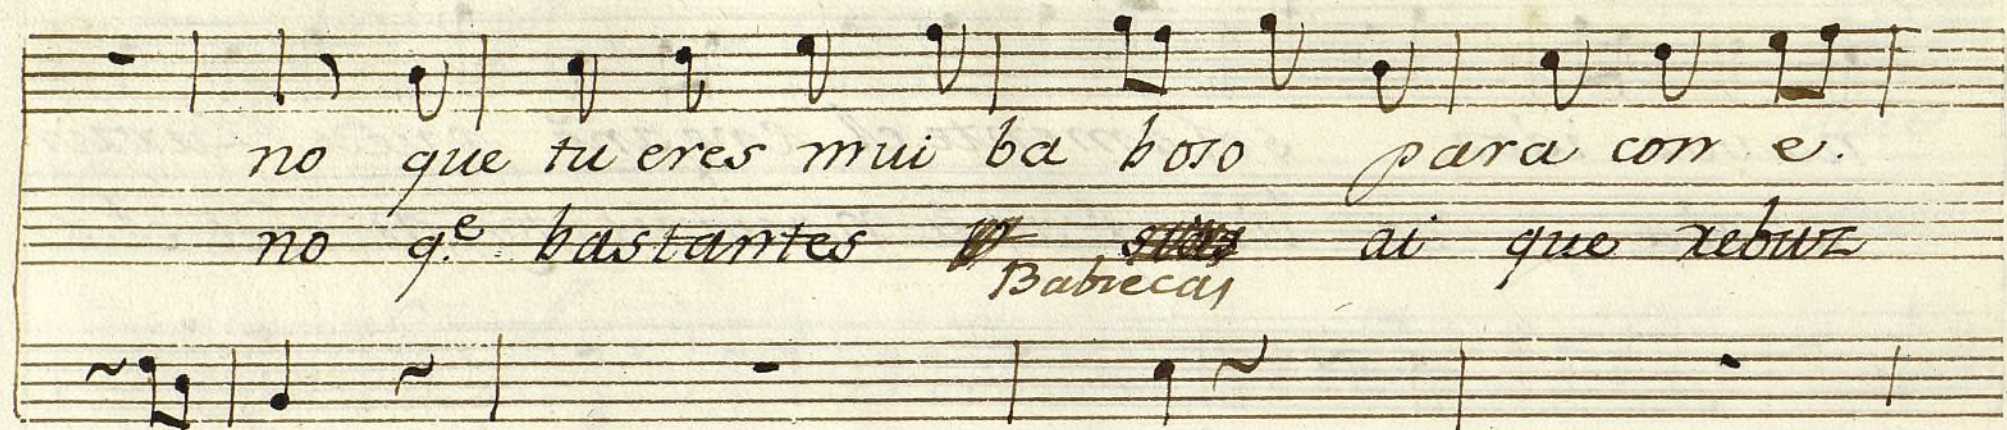 no que tu eres mui ba boso para con e.
no q.e bastantes ai que rebuz
Babiecas